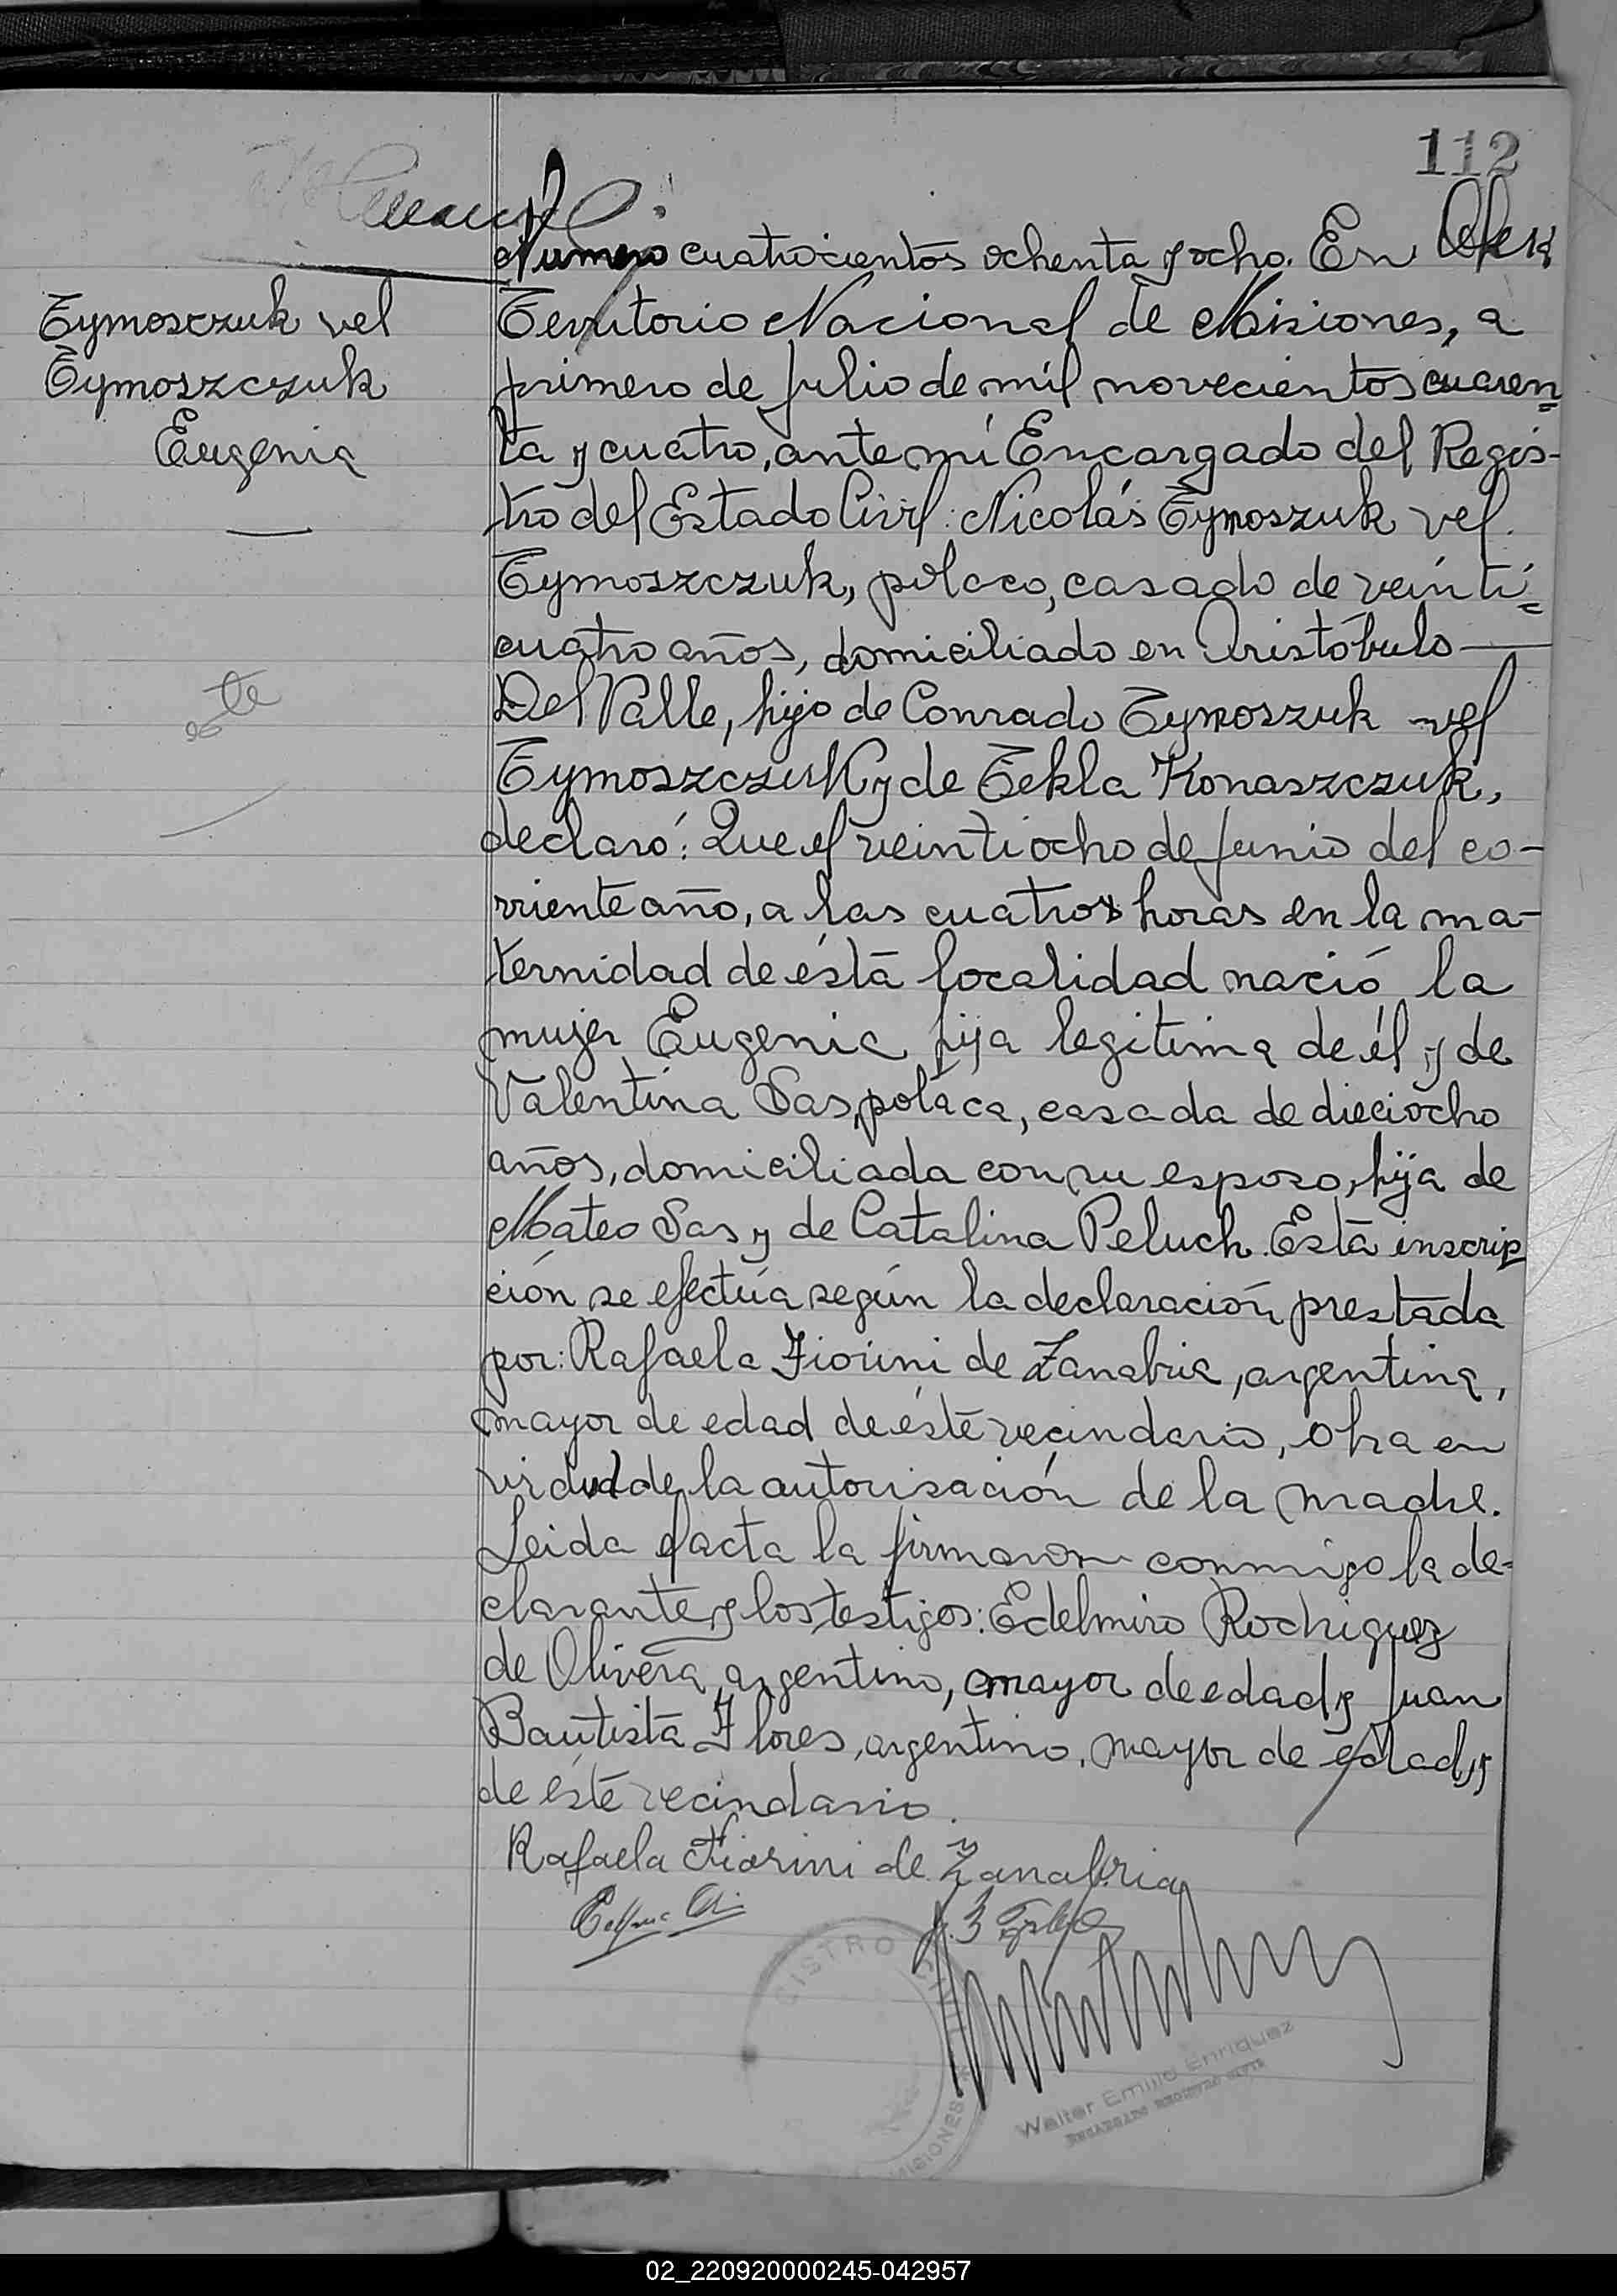 112
Numero cuatrocientos ochenta y ocho. En
Tymosczuk vel
Tymoszczuk
Eugenia
Territorio Nacional de Misiones, a
primero de julio de mil novecientos cuaren=
ta y cuatro, ante mi Encargado del Regis-
tro del Estado Civil: Nicolás Tymoszuk vel
Tymoszczuk, polaco, casado de veinti=
cuatro años, domiciliado en Aristóbulo
Del Valle, hijo de Conrado Tymoszuk vel
Tymoszczuk y de Tekla Konaszczuk,
declaró: Que el veintiocho de junio del co-
rriente año, a las cuatro horas en la ma-
ternidad de ésta localidad nació la
mujer Eugenia hija legitima de él y de
Valentina Sas, polaca, casada de dieciocho
años, domiciliada con su esposo, hija de
Mateo Sas y de Catalina Peluch. Está inscrip
ción se efectúa según la declaración prestada
por: Rafaela Fiorini de Zanabria, argentina,
mayor de edad de éste vecindario, obra en
virdud de la autorisación de la madre.
Leida el acta la firmaron conmigo la de=
clarante y los testigos: Edelmiro Rodriguez
de Olivera, argentino, mayor de edad y Juan
Bautista Flores, argentino, mayor de edad y
de éste vecindario.
Rafaela Fiorini de Zanabria
Walter Emilio Enriquez
ENCARGADO REGISTRO CIVIL
02_220920000245-042957